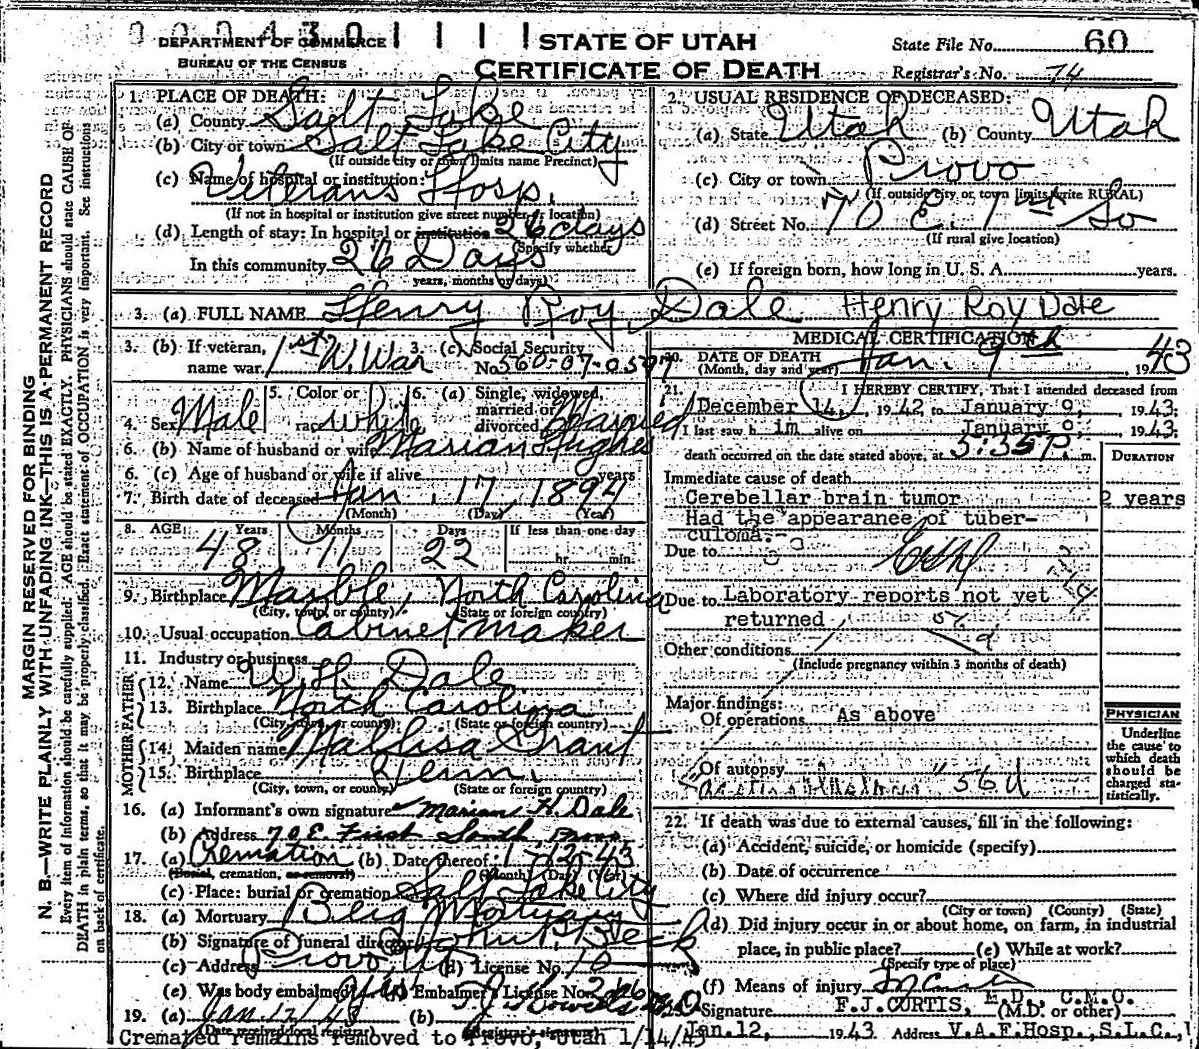 DEPARTMENT OF COMMERCE
BUREAU OF THE CENSUS
STATE OF UTAH
CERTIFICATE OF DEATH
State File No. 60
Registrar's No. 74
MARGIN RESERVED FOR BINDING
N. B.—WRITE PLAINLY WITH UNFADING INK—THIS IS A PERMANENT RECORD
Every item of information should be carefully supplied. AGE should be stated EXACTLY. PHYSICIANS should state CAUSE OF
DEATH in plain terms, so that it may be properly classified. Exact statement of OCCUPATION is very important. See instructions
on back of certificate.
1. PLACE OF DEATH:
(a) County Salt Lake
(b) City or town Salt Lake City
(If outside city or town limits name Precinct)
(c) Name of hospital or institution:
Veterans Hosp.
(If not in hospital or institution give street number or location)
(d) Length of stay: In hospital or institution 26 days
(Specify whether
In this community 26 Days
years, months or days)
2. USUAL RESIDENCE OF DECEASED:
(a) State Utah (b) County Utah
(c) City or town Provo
(If outside city or town limits write RURAL)
(d) Street No. 70 E. 1st So
(If rural give location)
(e) If foreign born, how long in U. S. A. years.
3. (a) FULL NAME Henry Roy Dale Henry Roy Dale
3. (b) If veteran, name war. 1st W. War 3. (c) Social Security No. 560-07-0597
4. Sex Male 5. Color or race White 6. (a) Single, widowed, married or divorced Married
6. (b) Name of husband or wife Marian Hughes
6. (c) Age of husband or wife if alive years
7. Birth date of deceased Jan. 17, 1894
(Month) (Day) (Year)
8. AGE: Years Months Days If less than one day
48 11 22 hr. min.
9. Birthplace Marble, North Carolina
(City, town, or county) (State or foreign country)
10. Usual occupation Cabinet maker
11. Industry or business
FATHER
12. Name W. H. Dale
13. Birthplace North Carolina
(City, town, or county) (State or foreign country)
MOTHER
14. Maiden name Mallisa Grant
15. Birthplace Tenn.
(City, town, or county) (State or foreign country)
16. (a) Informant's own signature Marian H. Dale
(b) Address 70 E. First South Provo
17. (a) Cremation (b) Date thereof 1-12-43
(Burial, cremation, or removal) (Month) (Day) (Year)
(c) Place: burial or cremation Salt Lake City
18. (a) Mortuary Berg Mortuary
(b) Signature of funeral director
(c) Address Provo, Ut (d) License No. 10
(e) Was body embalmed? Yes (f) Embalmer's License No.
19. (a) Jan. 12/43 (b)
(Date received local registrar) (Registrar's signature)
Cremated remains removed to Provo, Utah 1/14/43
MEDICAL CERTIFICATION
20. DATE OF DEATH
(Month, day and year) Jan. 9th, 1943
21. I HEREBY CERTIFY, That I attended deceased from
December 14, 1942 to January 9, 1943;
I last saw him alive on January 9, 1943;
death occurred on the date stated above, at 5:35 P. m.
DURATION
Immediate cause of death
Cerebellar brain tumor 2 years
Had the appearance of tuber-
culoma.
Due to
Due to Laboratory reports not yet
returned
Other conditions
(Include pregnancy within 3 months of death)
Major findings:
Of operations As above
Of autopsy
PHYSICIAN
Underline
the cause to
which death
should be
charged sta-
tistically.
22. If death was due to external causes, fill in the following:
(a) Accident, suicide, or homicide (specify)
(b) Date of occurrence
(c) Where did injury occur?
(City or town) (County) (State)
(d) Did injury occur in or about home, on farm, in industrial
place, in public place? (e) While at work?
(Specify type of place)
(f) Means of injury
Signature F.J. CURTIS, M.D., C.M.O.
(M.D. or other)
Jan 12, 1943 Address V.A.F. Hosp., S.L.C.,